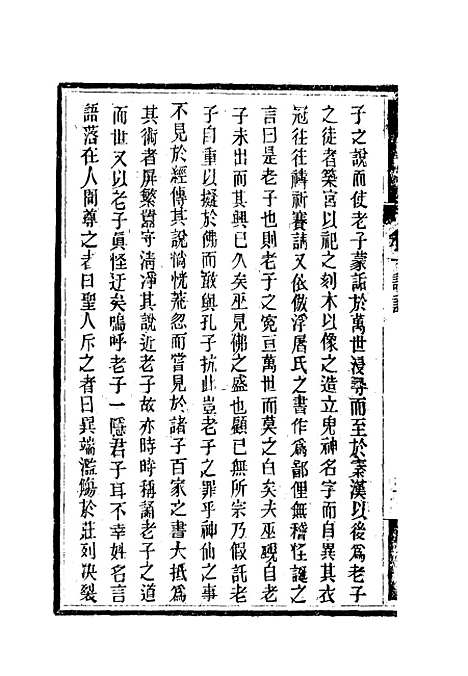 子之說而使老子蒙詬於萬世浸尋而至於秦漢以後爲老子
之徒者築宮以祀之刻木以像之造立鬼神名字而自異其衣
冠往往禱祈賽請又依倣浮屠氏之書作爲鄙俚無稽怪誕之
言曰是老子也則老子之寃亘萬世而莫之白矣夫巫覡自老
子未出而其興已久矣巫見佛之盛也顧已無所宗乃假託老
子自重以擬於佛而敢與孔子抗此豈老子之罪乎神仙之事
不見於經傳其說惝恍荒忽而嘗見於諸子百家之書大抵爲
其術者屏繁囂守淸淨其說近老子故亦時時稱誦老子之道
而世又以老子眞怪迂矣嗚呼老子一隱君子耳不幸姓名言
語落在人間尊之者曰聖人斥之者曰異端濫觴於莊列决裂